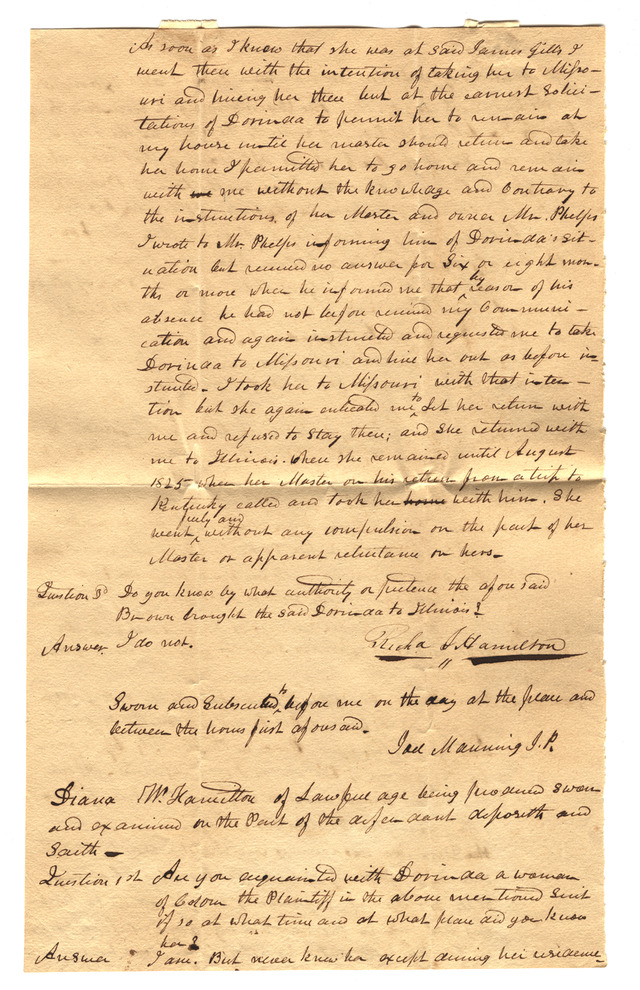 As soon as I knew that she was at said James Gills I
went then with the intention of taking her to Misso-
uri and hireing her there but at the earnest Solici-
tations of Dorinda to permit her to remain at
my house until her master should return and take
her home I permitted her to go home and remain
with me without the knowledge and Contrary to
the instructions, of her Master and owner Mr. Phelps
I wrote to Mr. Phelps informing him of Dorinda's sit-
uation but received no answer for Six or eight mon-
ths or more when he informed me that by reason of his
absence he had not before received my Communi-
cation and again instructed and requested me to take
Dorinda to Missouri and hire her out as before in-
structed. I took her to Missouri with that inten-
tion but she again entreated me to Let her return with
me and refused to Stay there; and She returned with
me to Illinois. where she remained until August
1825 when her Master on his return from a trip to
Kentucky called and took her home with him. She
went freely and without any compulsion on the part of her
Master or apparent reluctance on hers.
Question 3d Do you know by what authority or pretence the afore said
Brown brought the said Dorinda to Illinois?
Answer. I do not. Richd J Hamilton
Sworn and Subscribed to before me on the day at the place and
between the hours first aforesaid.
Joel Manning J.P.
Diana W. Hamilton of Lawful age being produced sworn
and examined on the Part of the defendant deposeth and
Saith
Question 1st Are you acquainted with Dorinda a woman
of Colour the Plaintiff in the above mentioned Suit
if so at what time and at what place did you know
her?
Answer I am. But never knew her except during her residence